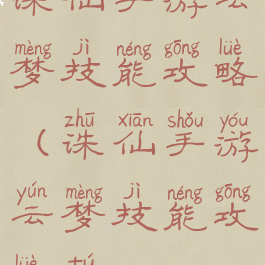 诛仙手游云
mèng jì néng gōng lüè
梦技能攻略
zhū xiān shǒu yóu
（诛仙手游
yún mèng jì néng gōng
云梦技能攻
lüè